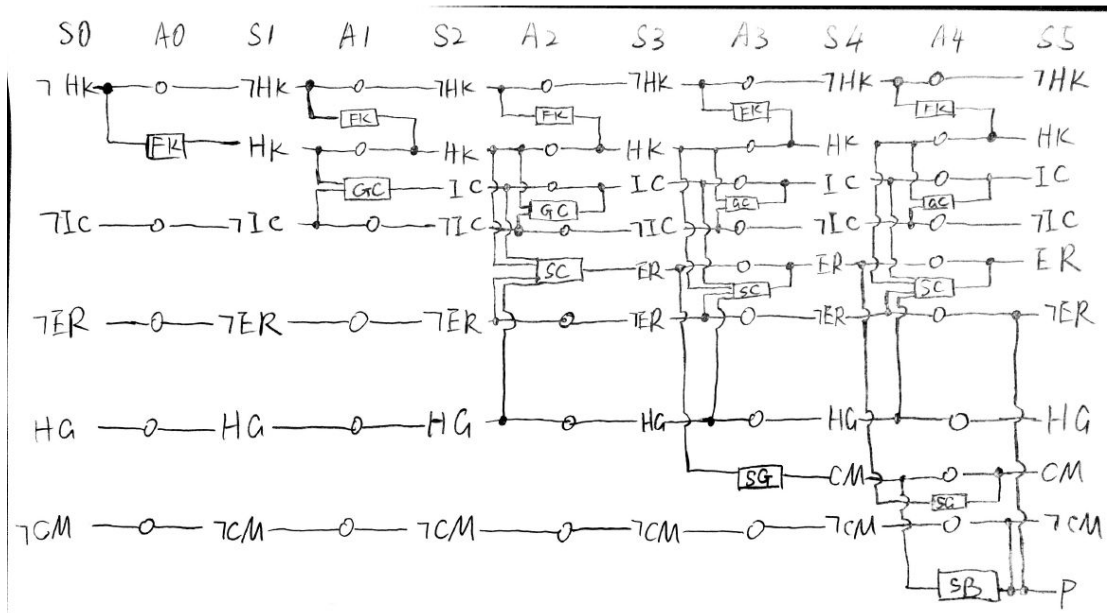 S0 A0 S1 A1 S2 A2 S3 A3 S4 A4 S5
¬HK ¬HK ¬HK ¬HK ¬HK ¬HK
FK FK FK FK FK
HK HK HK HK HK
GC IC IC IC IC
GC GC GC
¬IC ¬IC ¬IC ¬IC ¬IC ¬IC
SC ER ER ER
SC SC
¬ER ¬ER ¬ER ¬ER ¬ER ¬ER
HG HG HG HG HG HG
SG CM CM
SG
¬CM ¬CM ¬CM ¬CM ¬CM ¬CM
SB P